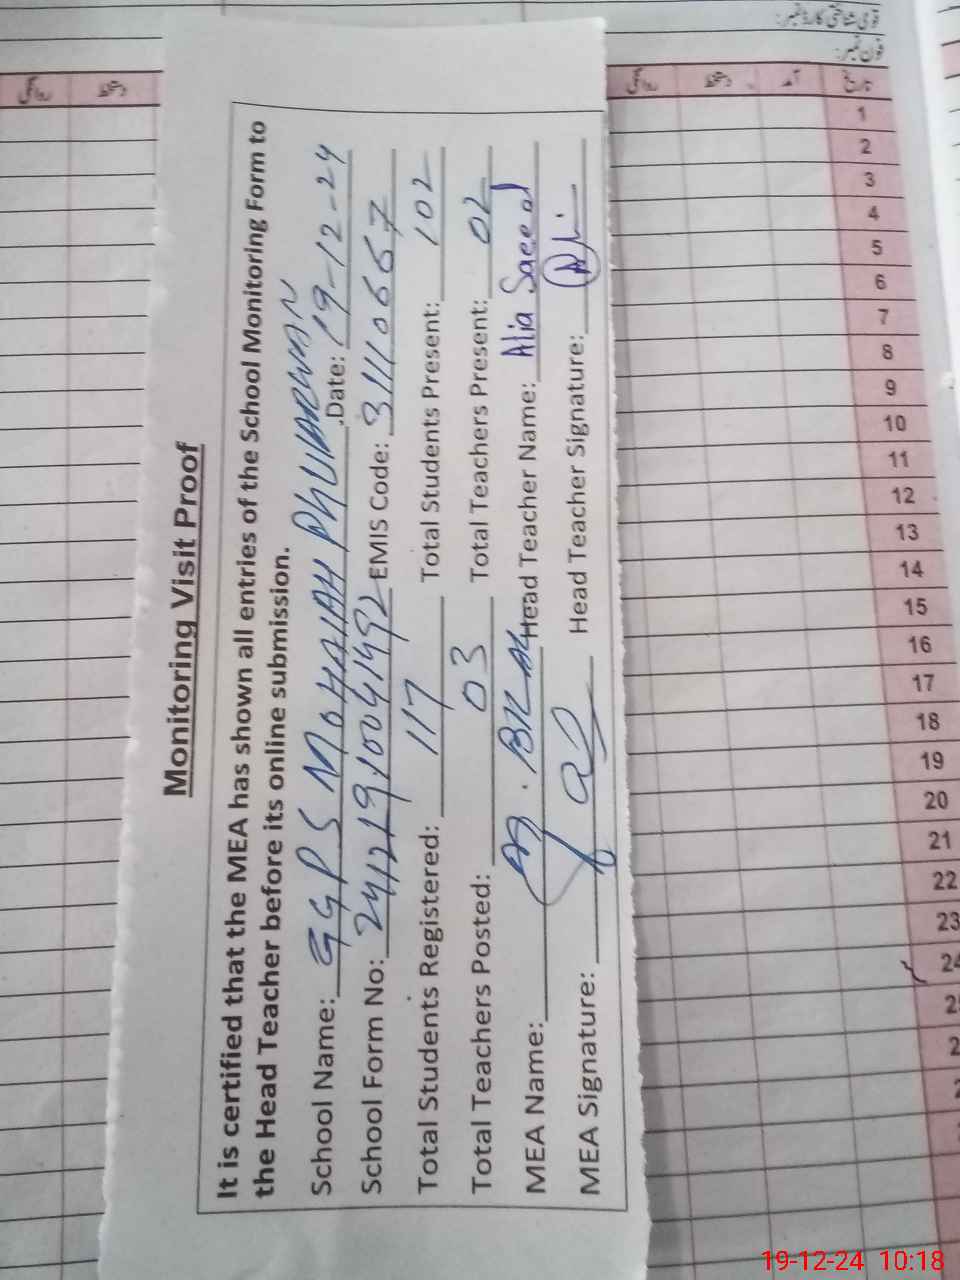 قومی شناختی کارڈ نمبر:
فون نمبر:
تاریخ آمد دستخط روانگی
دستخط روانگی
Monitoring Visit Proof
It is certified that the MEA has shown all entries of the School Monitoring Form to
the Head Teacher before its online submission.
School Name: GGPS MOHAIAH PHULARWAN Date: 19-12-24
School Form No: 24121910041492 EMIS Code: 31110667
Total Students Registered: 117 Total Students Present: 102
Total Teachers Posted: 03 Total Teachers Present: 02
MEA Name: Head Teacher Name: Alia Saeed
MEA Signature: Head Teacher Signature:
1
2
3
4
5
6
7
8
9
10
11
12
13
14
15
16
17
18
19
20
21
22
23
24
19-12-24 10:18